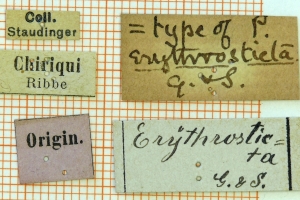 Coll.
Staudinger
Chiriqui
Ribbe
Origin.
= type of P.
erythrosticta
G. & S.
Erythrostic=
ta
G. & S.